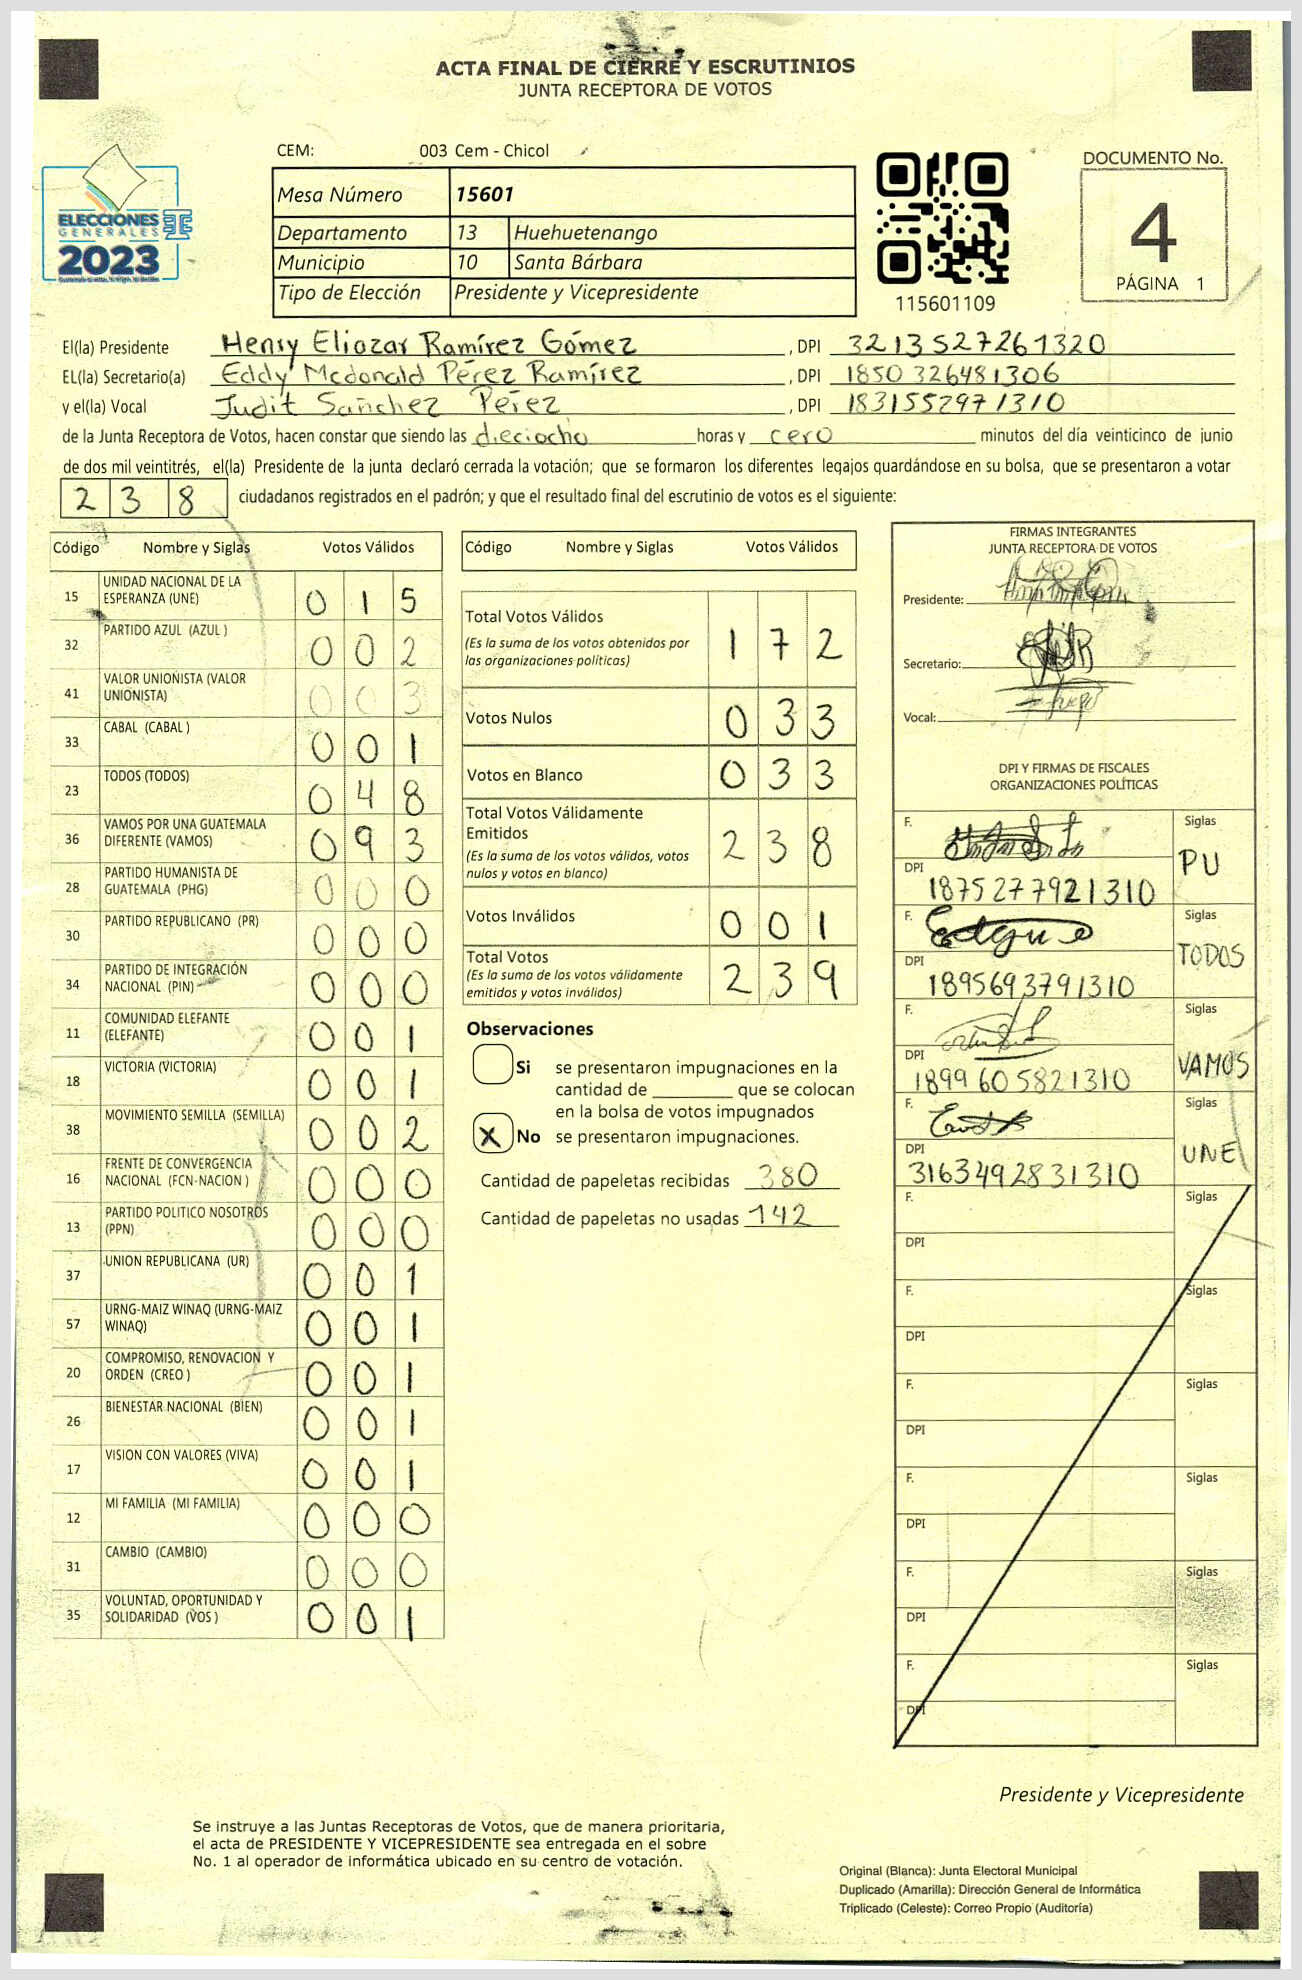 ACTA FINAL DE CIERRE Y ESCRUTINIOS
JUNTA RECEPTORA DE VOTOS
CEM: 003 Cem - Chicol
ELECCIONES
GENERALES
2023
Mesa Número 15601
Departamento 13 Huehuetenango
Municipio 10 Santa Bárbara
Tipo de Elección Presidente y Vicepresidente
115601109
DOCUMENTO No.
4
PÁGINA 1
El(la) Presidente Henry Eliazar Ramírez Gómez, DPI 3213527261320
EL(la) Secretario(a) Eddy Mcdonald Pérez Ramírez, DPI 1850326481306
y el(la) Vocal Judit Sanchez Pérez, DPI 1831552971310
de la Junta Receptora de Votos, hacen constar que siendo las dieciocho horas y cero minutos del día veinticinco de junio
de dos mil veintitrés, el(la) Presidente de la junta declaró cerrada la votación; que se formaron los diferentes legajos guardándose en su bolsa, que se presentaron a votar
238 ciudadanos registrados en el padrón; y que el resultado final del escrutinio de votos es el siguiente:
Código Nombre y Siglas Votos Válidos
15 UNIDAD NACIONAL DE LA ESPERANZA (UNE) 015
32 PARTIDO AZUL (AZUL ) 002
41 VALOR UNIONISTA (VALOR UNIONISTA) 003
33 CABAL (CABAL ) 001
23 TODOS (TODOS) 048
36 VAMOS POR UNA GUATEMALA DIFERENTE (VAMOS) 093
28 PARTIDO HUMANISTA DE GUATEMALA (PHG) 000
30 PARTIDO REPUBLICANO (PR) 000
34 PARTIDO DE INTEGRACIÓN NACIONAL (PIN) 000
11 COMUNIDAD ELEFANTE (ELEFANTE) 001
18 VICTORIA (VICTORIA) 001
38 MOVIMIENTO SEMILLA (SEMILLA) 002
16 FRENTE DE CONVERGENCIA NACIONAL (FCN-NACION ) 000
13 PARTIDO POLITICO NOSOTROS (PPN) 000
37 UNION REPUBLICANA (UR) 001
57 URNG-MAIZ WINAQ (URNG-MAIZ WINAQ) 001
20 COMPROMISO, RENOVACION Y ORDEN (CREO ) 001
26 BIENESTAR NACIONAL (BIEN) 001
17 VISION CON VALORES (VIVA) 001
12 MI FAMILIA (MI FAMILIA) 000
31 CAMBIO (CAMBIO) 000
35 VOLUNTAD, OPORTUNIDAD Y SOLIDARIDAD (VOS ) 001
Código Nombre y Siglas Votos Válidos
Total Votos Válidos 172
(Es la suma de los votos obtenidos por
las organizaciones políticas)
Votos Nulos 033
Votos en Blanco 033
Total Votos Válidamente
Emitidos 238
(Es la suma de los votos válidos, votos
nulos y votos en blanco)
Votos Inválidos 001
Total Votos 239
(Es la suma de los votos válidamente
emitidos y votos inválidos)
Observaciones
Si se presentaron impugnaciones en la
cantidad de ________ que se colocan
en la bolsa de votos impugnados
X No se presentaron impugnaciones.
Cantidad de papeletas recibidas 380
Cantidad de papeletas no usadas 142
FIRMAS INTEGRANTES
JUNTA RECEPTORA DE VOTOS
Presidente:
Secretario:
Vocal:
DPI Y FIRMAS DE FISCALES
ORGANIZACIONES POLÍTICAS
F. Siglas
PU
DPI 1875277921310
F. Siglas
TODOS
DPI 1895693791310
F. Siglas
VAMOS
DPI 1899605821310
F. Siglas
UNE
DPI 3163492831310
F. Siglas
DPI
F. Siglas
DPI
F. Siglas
DPI
F. Siglas
DPI
F. Siglas
DPI
F. Siglas
DPI
Presidente y Vicepresidente
Se instruye a las Juntas Receptoras de Votos, que de manera prioritaria,
el acta de PRESIDENTE Y VICEPRESIDENTE sea entregada en el sobre
No. 1 al operador de informática ubicado en su centro de votación.
Original (Blanca): Junta Electoral Municipal
Duplicado (Amarilla): Dirección General de Informática
Triplicado (Celeste): Correo Propio (Auditoría)